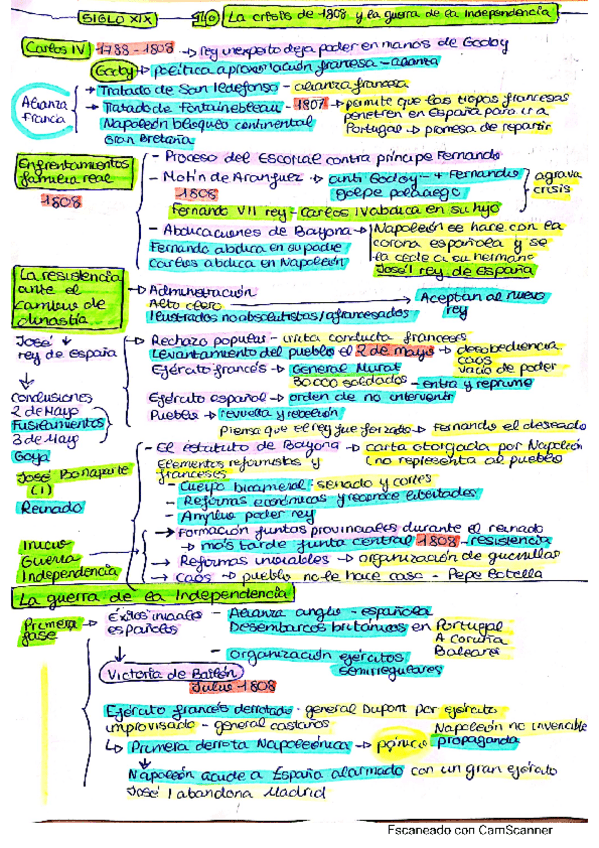 SIGLO XIX
La crisis de 1808 y la guerra de la Independencia
Carlos IV 1788 - 1808 → rey inexperto deja poder en manos de Godoy
Godoy → política aproximación francesa - alianza
Alianza Francia
→ Tratado de San Ildefonso - alianza francesa
→ Tratado de Fontainebleau - 1807 → permite que las tropas francesas
penetren en España para ir a
Napoleón bloqueo continental
Portugal → promesa de repartir
Gran Bretaña
Enfrentamientos familia real
1808
- Proceso del Escorial contra príncipe Fernando
- Motín de Aranjuez → anti Godoy - + Fernando
1808
golpe palaciego
agrava crisis
Fernando VII rey = Carlos IV abdica en su hijo
- Abdicaciones de Bayona → Napoleón se hace con la
Fernando abdica en su padre
corona española y se
Carlos abdica en Napoleón
la cede a su hermano
José I rey de España
La resistencia ante el cambio de dinastía
→ Administración
Alto clero
→ Aceptan al nuevo rey
Ilustrados no absolutistas/afrancesados
José ↓
rey de España
→ Rechazo popular - invita conducta franceses
Levantamiento del pueblo el 2 de mayo → desobediencia
caos
vacío de poder
Ejército francés → General Murat
30000 soldados - entra y reprime
↓
conclusiones
2 de Mayo
Fusilamientos
3 de Mayo
Goya
Ejército español → orden de no intervenir
Pueblo → revuelta y rebelión
Piensa que el rey fue forzado → Fernando el deseado
José Bonaparte
(I)
Reinado
- El estatuto de Bayona → carta otorgada por Napoleón
Elementos reformistas y
(no representa al pueblo
franceses
- Cuerpo bicameral: senado y cortes
- Reformas económicas y reconoce libertades
- Amplio poder rey
Inicio
Guerra
Independencia
→ Formación juntas provinciales durante el reinado
→ más tarde junta central 1808 - resistencia
→ Reformas inviables → organización de guerrillas
→ caos → pueblo no le hace caso - Pepe Botella
La guerra de la Independencia
Primera fase
→ Éxitos iniciales españoles
- Alianza anglo - española
Desembarcos británicos en Portugal
A coruña
Baleares
- organización ejércitos
semirregulares
Victoria de Bailén
Julio - 1808
Ejército francés derrotado - general Dupont por ejército
improvisado - general castaños
Napoleón no invencible
↳ Primera derrota Napoleónica → pánico propaganda
↓
Napoleón acude a España alarmado con un gran ejército
José I abandona Madrid
Escaneado con CamScanner